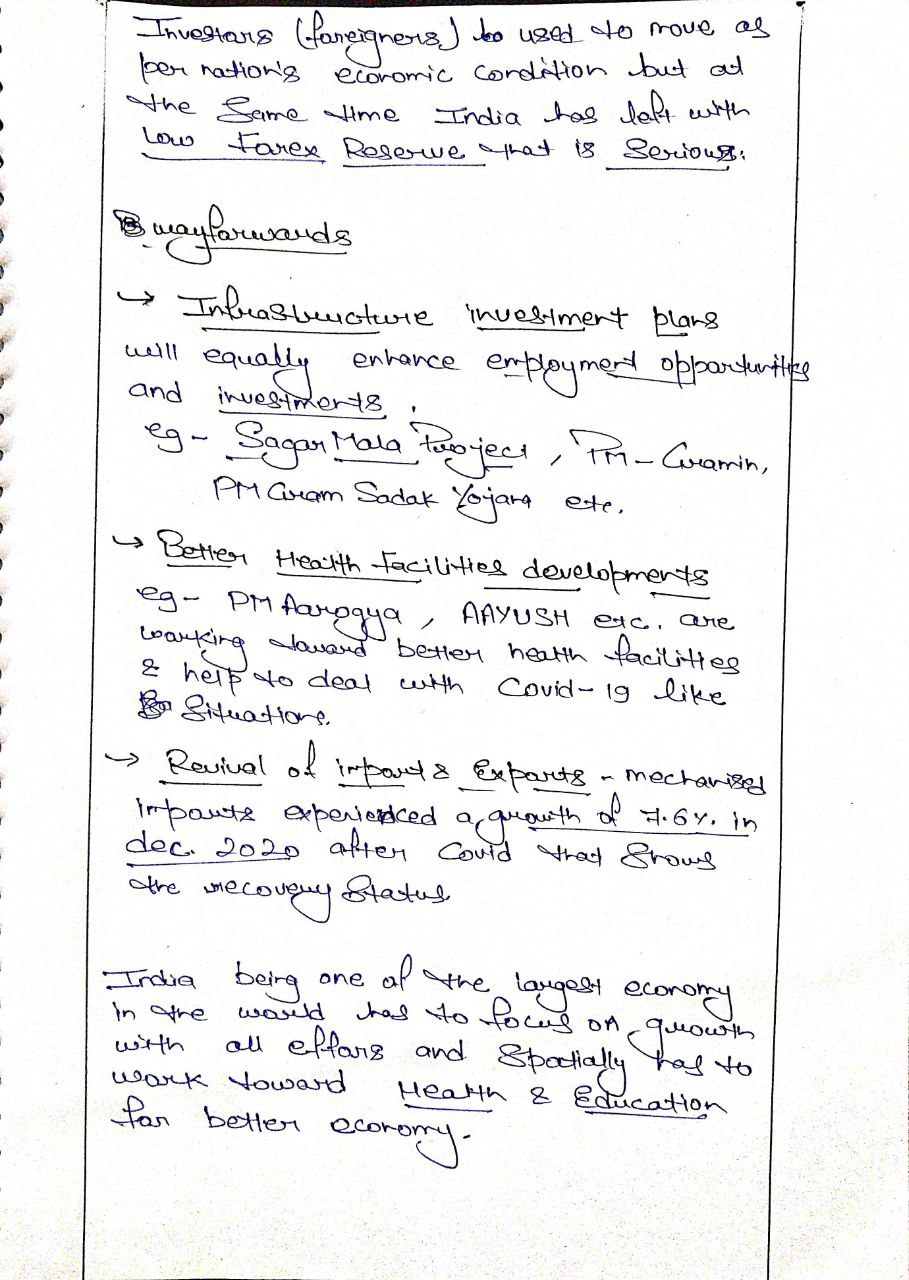 Investors (foreigners) to used to move as
per nation's economic condition but at
the same time India has left with
Low Forex Reserve that is Serious.
wayforwards
→ Infrastructure investment plans
will equally enhance employment opportunities
and investments.
eg - SagarMala Project, PM-Gramin,
PM Gram Sadak Yojana etc.
→ Better Health Facilities developments
eg - PM Aarogya, AAYUSH etc. are
working toward better health facilities
& help to deal with Covid-19 like
Situations.
→ Revival of import & Exports - mechanised
imports experienced a growth of 7.6%. in
dec. 2020 after Covid that Shows
the recovery Status
India being one of the largest economy
in the world has to focus on growth
with all effors and Spatially has to
work toward Health & Education
for better economy.